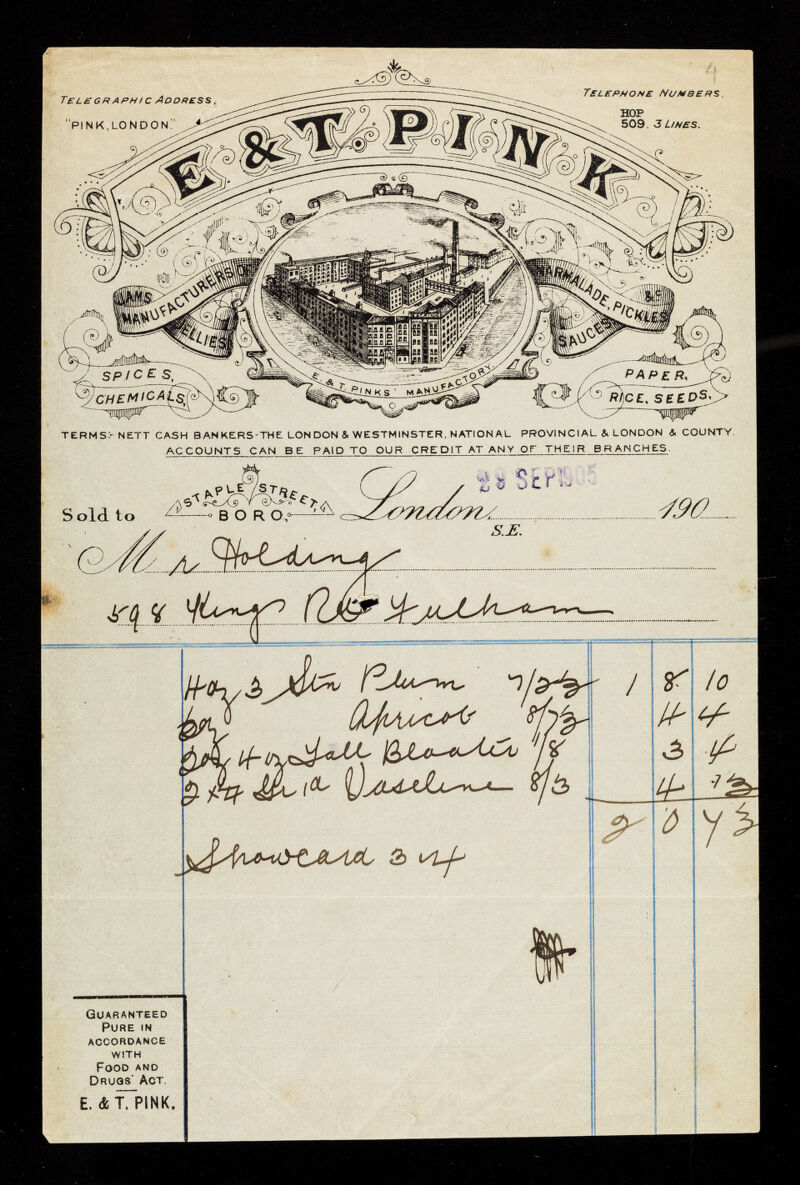 4
TELEGRAPHIC ADDRESS,
"PINK, LONDON."
TELEPHONE NUMBERS,
HOP
509. 3 LINES.
E & T. PINK
JAMS
MANUFACTURERS OF
JELLIES
MARMALADE, PICKLES &c
SAUCES
E. & T. PINKS' MANUFACTORY
SPICES,
CHEMICALS,
PAPER,
RICE, SEEDS,
TERMS:- NETT CASH BANKERS-THE LONDON & WESTMINSTER, NATIONAL PROVINCIAL & LONDON & COUNTY.
ACCOUNTS CAN BE PAID TO OUR CREDIT AT ANY OF THEIR BRANCHES.
STAPLE STREET,
BORO,
Sold to
London,
S.E.
SEP 1905
190
Mr Holding
598 Kings Rd Fulham
4 oz 3 Stn Plum 7/2½ 1 8 10
Apricot 8/7½ 4 4
4 oz Tall Bloater 1/8 3 4
2 Gr 1d Vaseline 8/3 4 1½
2 0 7½
Showcard 3
GUARANTEED
PURE IN
ACCORDANCE
WITH
FOOD AND
DRUGS' ACT.
E. & T. PINK.